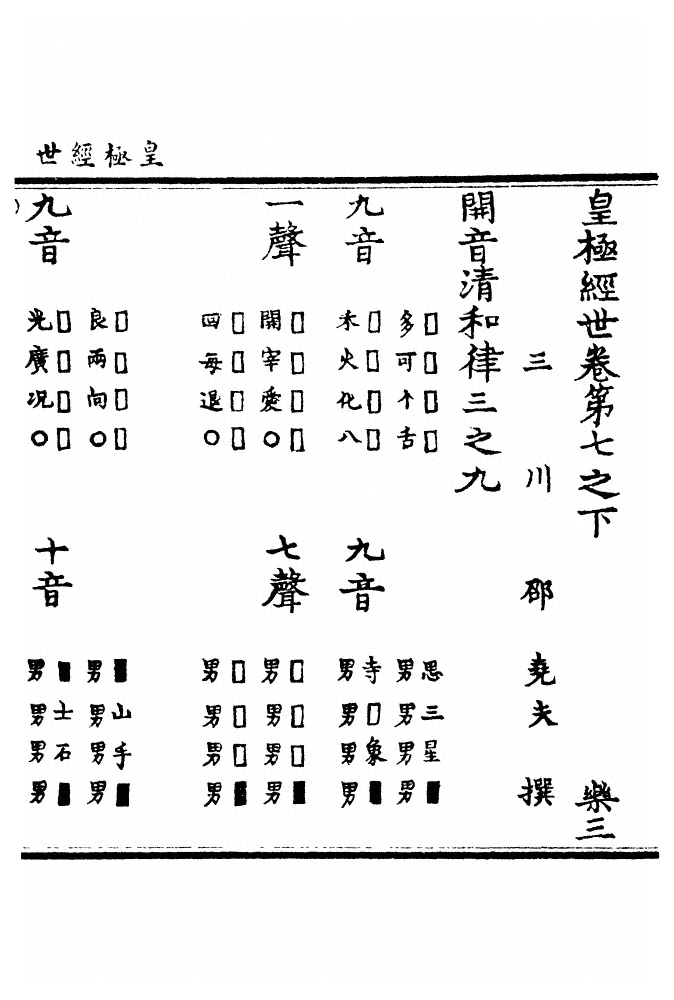 皇極經世
皇極經世卷第七之下 樂三
三川 邵堯夫 撰
開音清和律三之九
九音
□□□□
多可个舌
□□□□
禾火化八
九音
思三星■
男男男男
寺□象■
男男男男
一聲
□□□□
開宰愛○
□□□□
回每退○
七聲
□□□■
男男男男
□□□■
男男男男
九音
□□□□
良兩向○
□□□□
光廣况○
十音
■山手■
男男男男
■士石■
男男男男